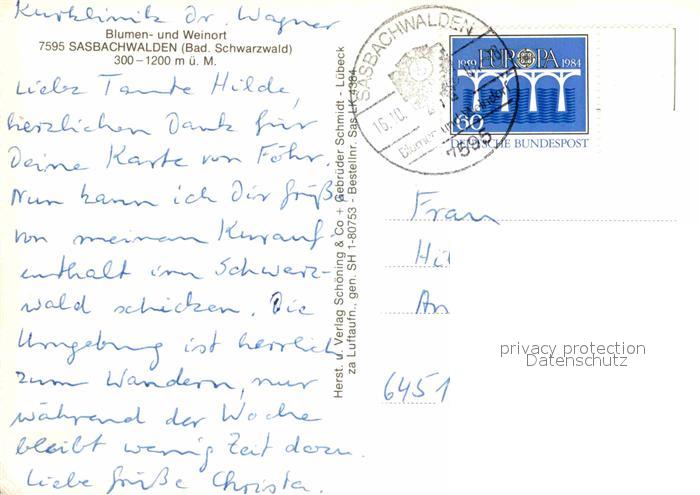 Kurklinik Dr. Wagner
Blumen- und Weinort
7595 SASBACHWALDEN (Bad. Schwarzwald)
300–1200 m ü. M.
Liebe Tante Hilde,
herzlichen Dank für
Deine Karte von Föhr.
Nun kann ich Dir Grüße
von meinem Kurauf-
enthalt im Schwarz-
wald schicken. Die
Umgebung ist herrlich
zum Wandern, nur
während der Woche
bleibt wenig Zeit dazu.
Liebe Grüße Christa.
Herst. u. Verlag Schöning & Co + Gebrüder Schmidt - Lübeck
za Luftaufn., gen. SH 1-80753 - Bestellnr. Sas LK 4384
SASBACHWALDEN
16.10.
Blumen- und Weindorf
7595
1959 EUROPA 1984
60
DEUTSCHE BUNDESPOST
Frau
Hil
An
6451
privacy protection
Datenschutz